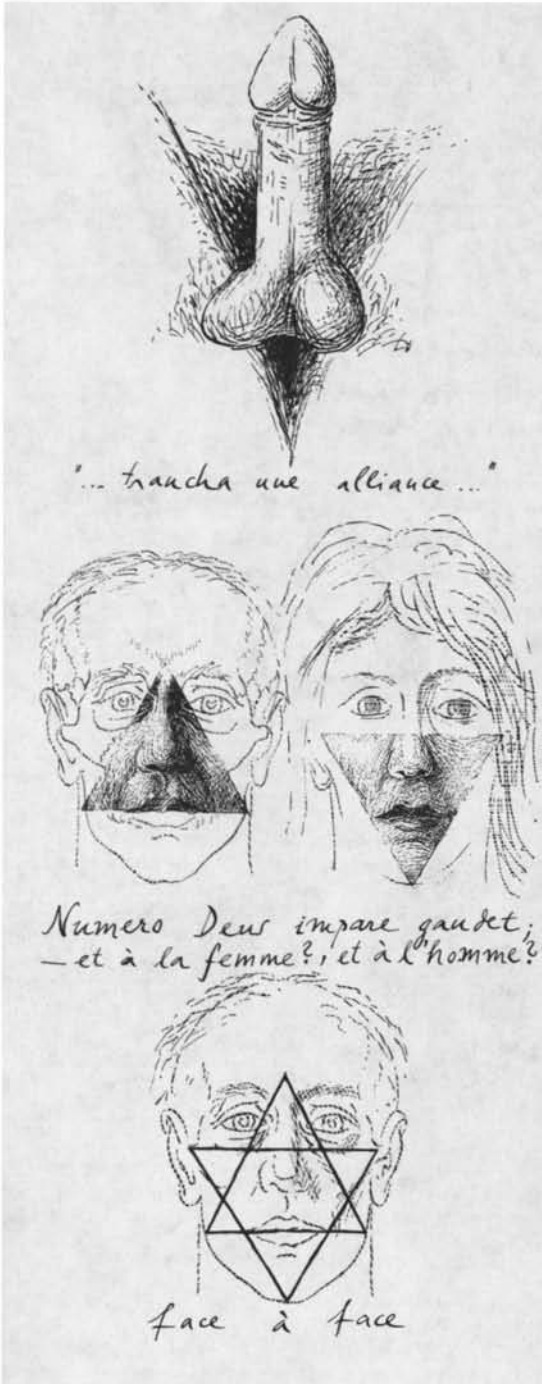 "... trancha une alliance ..."
Numero Deus impare gaudet;
— et à la femme?, et à l'homme?
face à face